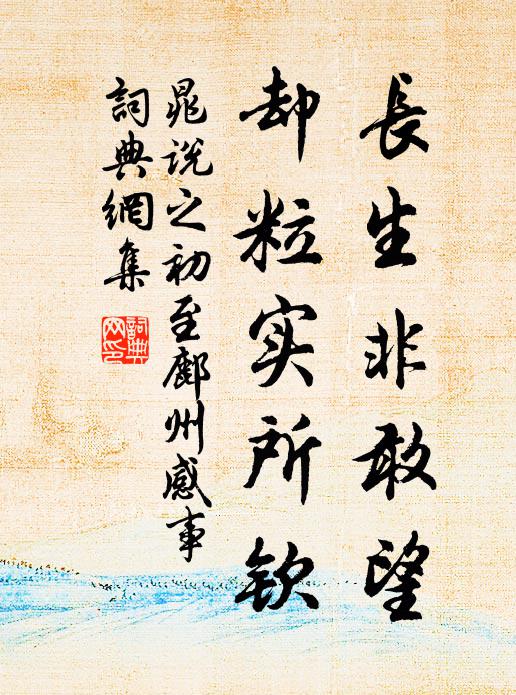 長生非敢望
却粒实所钦
晁說之初至鄜州感事
詞典網集
詞典
网印